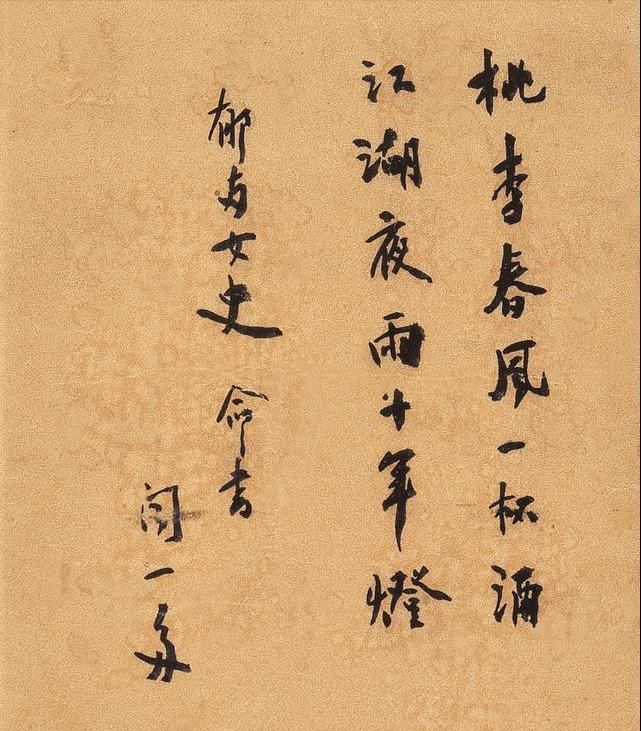 桃李春風一杯酒
江湖夜雨十年燈
郁女史命書
聞一多